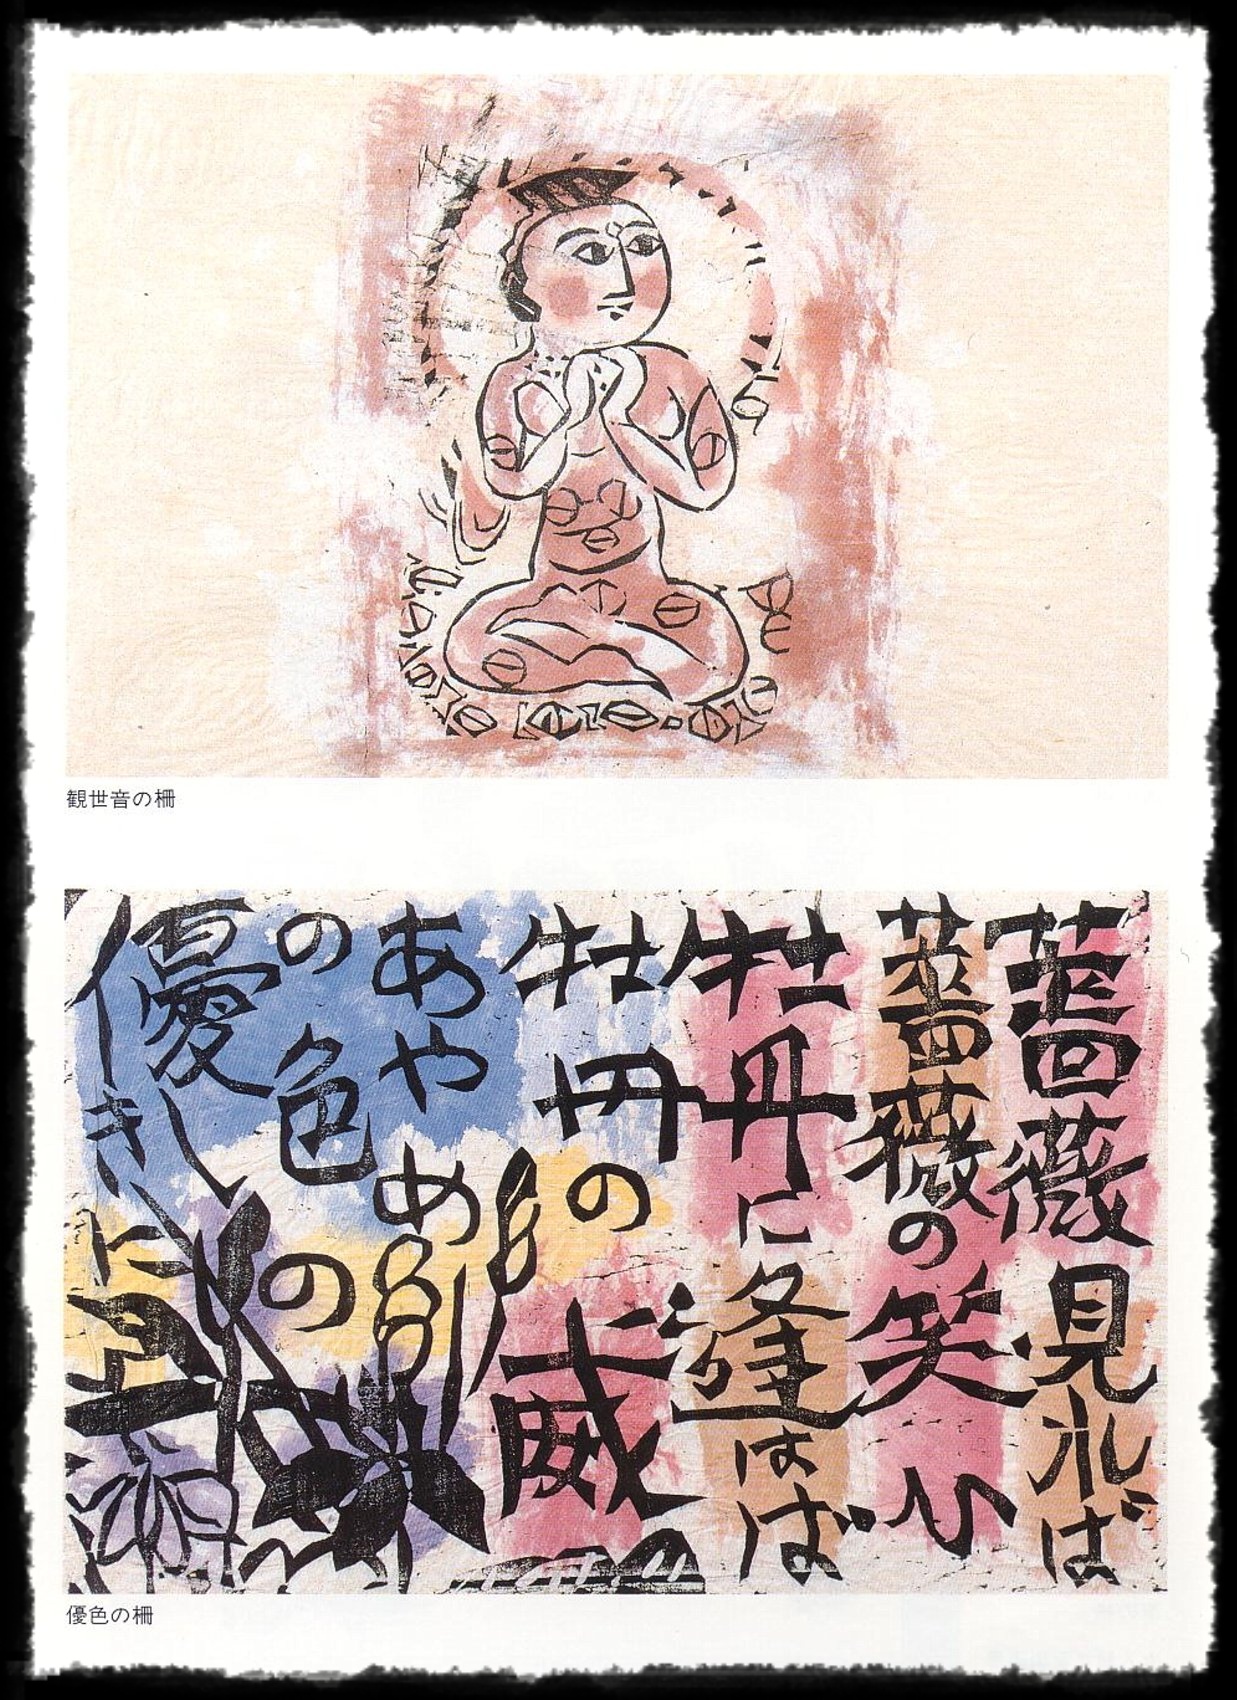 観世音の柵
薔薇見れば
薔薇の笑ひ
牡丹に逢はば
牡丹の威
あやめ
の色の
優しきに
優色の柵